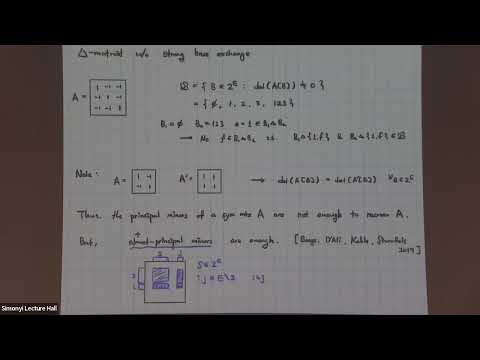 Δ-matroid w/o strong base exchange
A = 1 1 -1 -1 1 -1 -1 -1 1
ℬ = { B ∈ 2^E : det(A[B]) ≠ 0 }
= { ∅, 1, 2, 3, 123 }
B₁ = ∅ B₂ = 123 e = 1 ∈ B₁ △ B₂
→ No f ∈ B₁ △ B₂ st. B₁ △ {1,f} & B₂ △ {1,f} ∈ ℬ
Note : A = 1 -1 -1 1 A' = 1 1 1 1 → det(A[B]) = det(A'[B]) ∀B ∈ 2^E
Thus the principal minors of a sym mtx A are not enough to recover A.
But, almost-principal minors are enough. [Boege, D'Alì, Kahle, Sturmfels 2019]
S ∈ 2^E
i, j ∈ E\S i≠j
Simonyi Lecture Hall